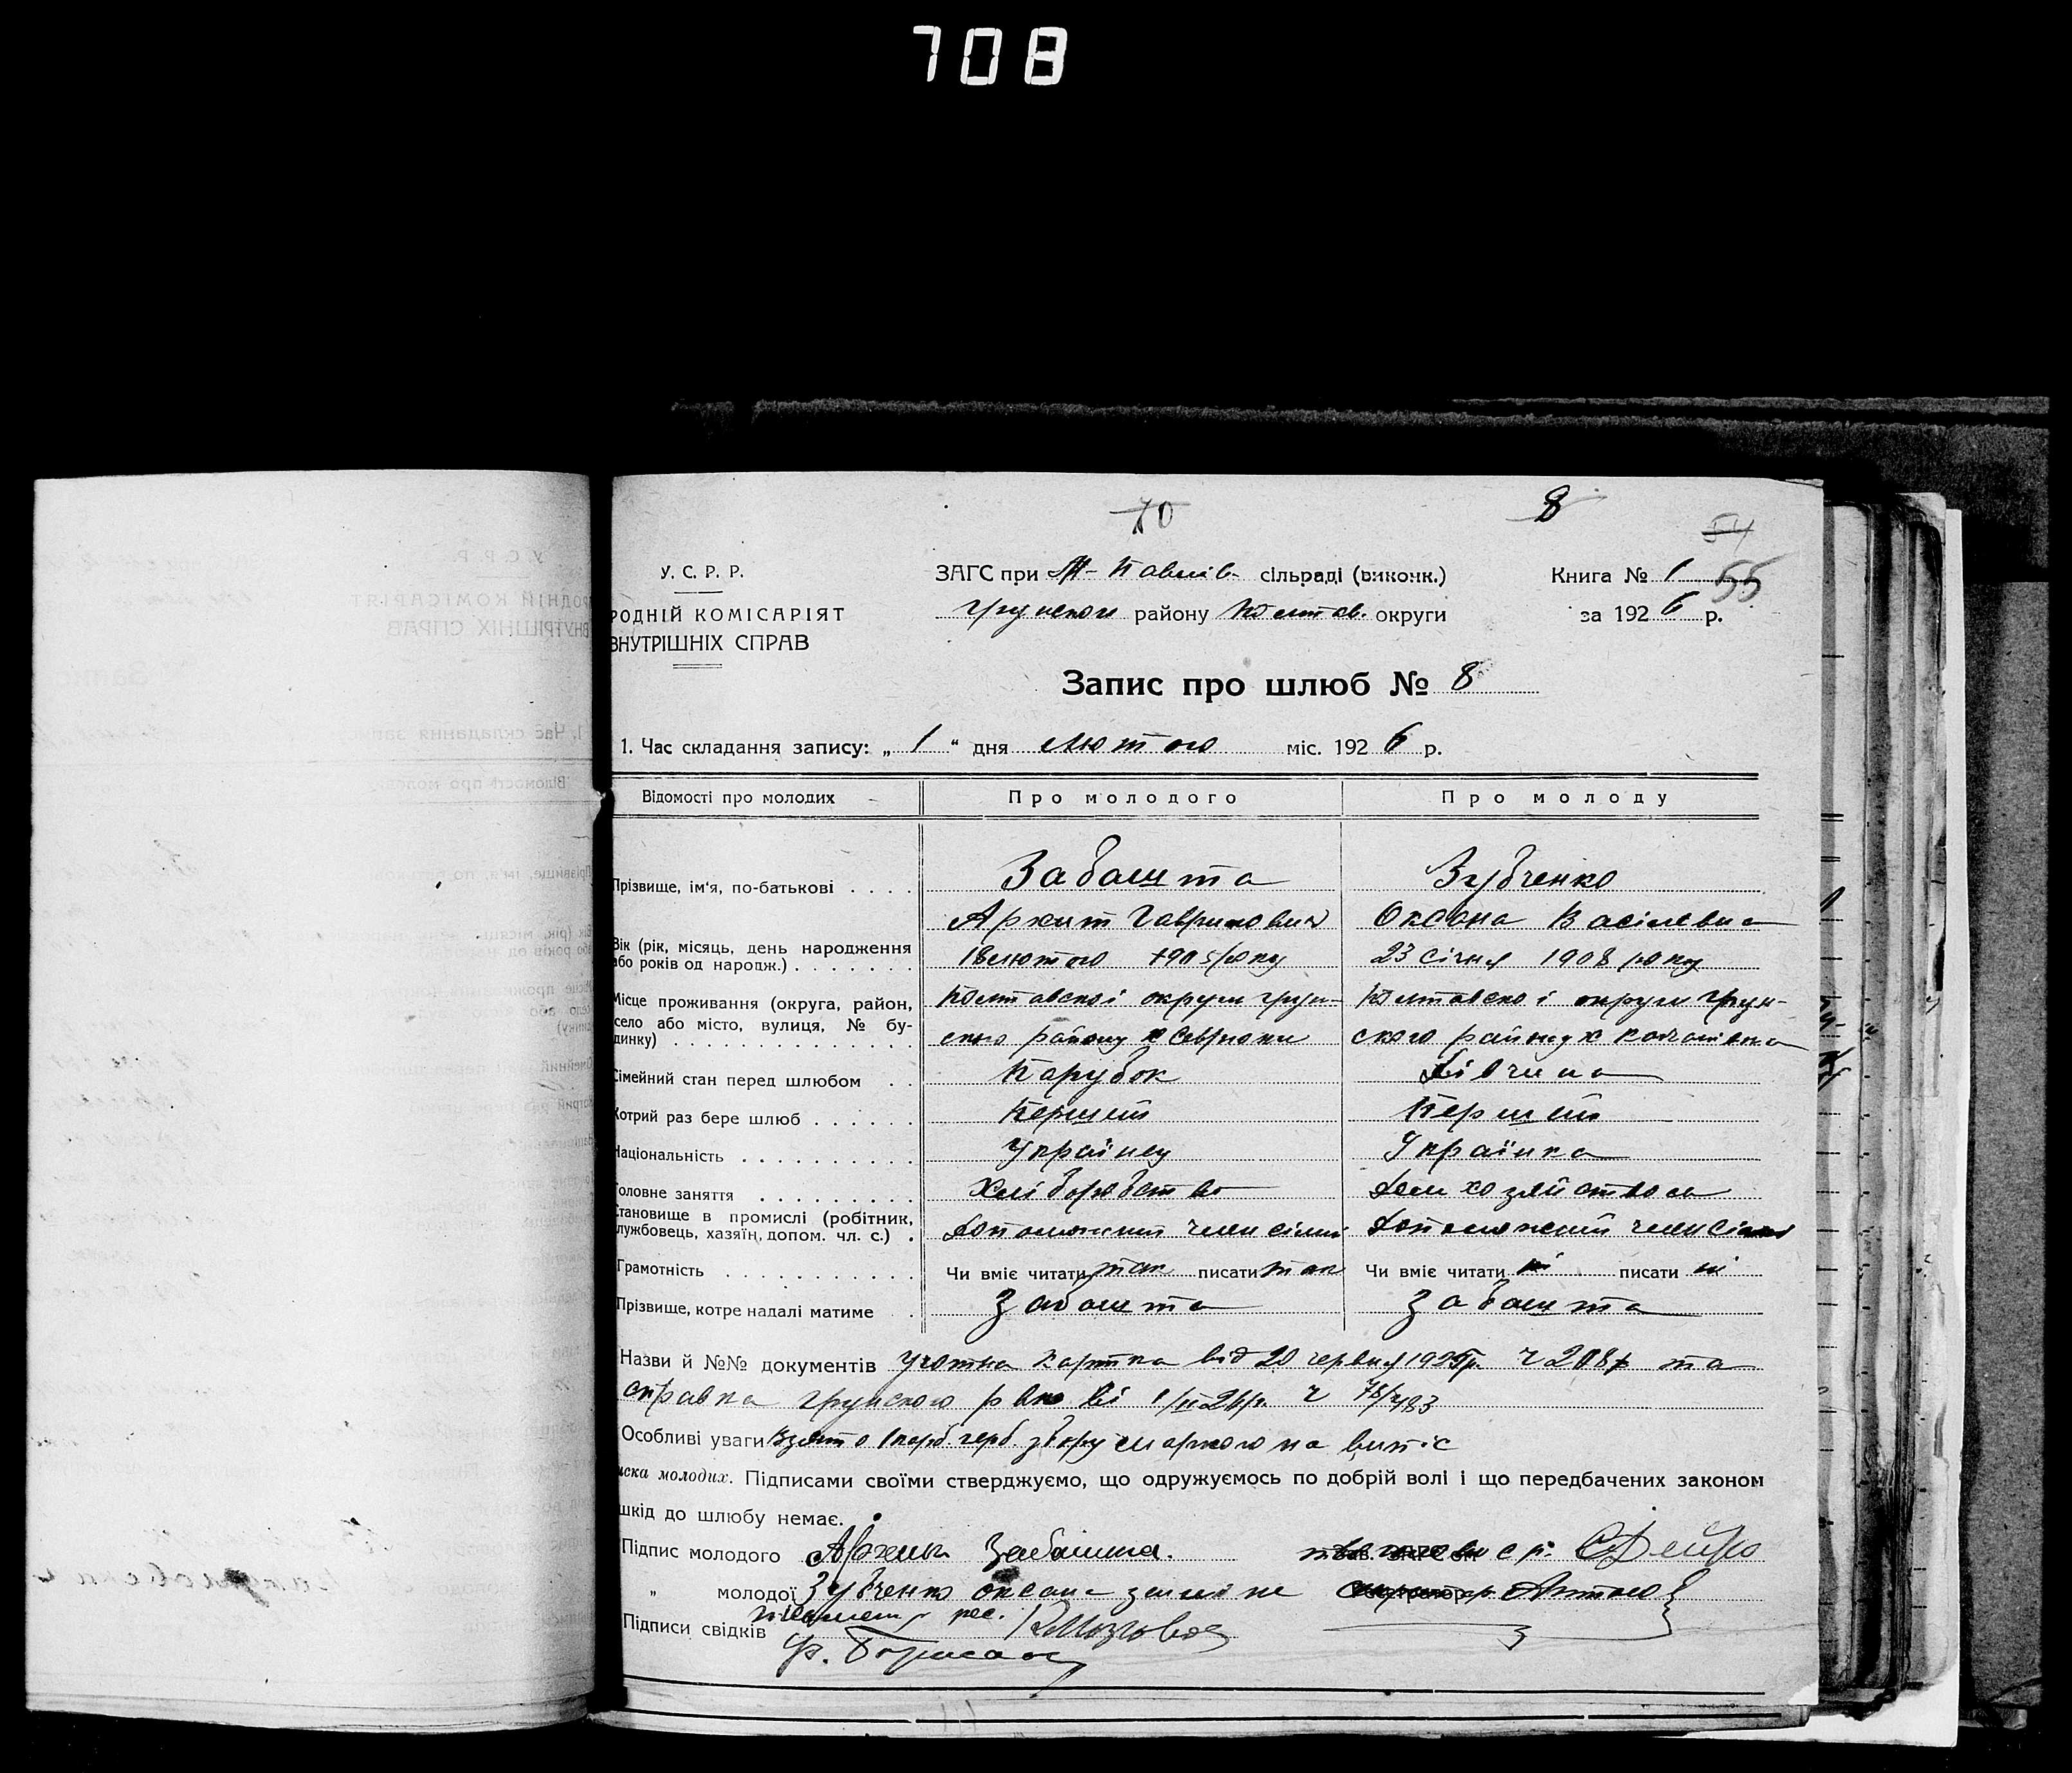 708
70
8
54
55
У. С. Р. Р.
РОДНІЙ КОМІСАРІЯТ
ВНУТРІШНІХ СПРАВ
ЗАГС при М-Павлів. сільраді (виконк.)
Грунського району Полтав. округи
Книга № 1
за 1926 р.
Запис про шлюб № 8
1. Час складання запису: „ 1 “ дня лютого міс. 1926 р.
Відомості про молодих Про молодого Про молоду
Прізвище, ім'я, по-батькові . . . . Забашта Зубченко
Гаврилович Оксана Васілевна
Вік (рік, місяць, день народження
або років од народж.) . . . . . . . 18 лютого 1905 року 23 січня 1908 року
Місце проживання (округа, район, Полтавської округи Грун- Полтавської округи Грун-
село або місто, вулиця, № бу-
динку) . . . . . . . . . . . . . . ського району х ського району х
Сімейний стан перед шлюбом . Парубок Дівчина
Котрий раз бере шлюб . . . . . . Перший Перший
Національність . . . . . . . . . . Українец Українка
Головне заняття . . . . . . . . . Хліборобство Дом хозяйством
Становище в промислі (робітник,
службовець, хазяїн, допом. чл. с.) . Допоможний член сімї Допоможний член сімї
Грамотність . . . . . . . . . . . Чи вміє читати так писати так Чи вміє читати ні писати ні
Прізвище, котре надалі матиме . Забашта Забашта
Назви й №№ документів Учотна Картка від 20 червня 1925 р. ч та
справка Грунского рвк ві 1/II 26 р. ч 76/483
Особливі уваги Взято 1 карб. герб. збору на випіс
иска молодих. Підписами своїми стверджуємо, що одружуємось по добрій волі і що передбачених законом
шкід до шлюбу немає.
Підпис молодого Забашта.
„ молодої Зубченко оксана
Підписи свідків